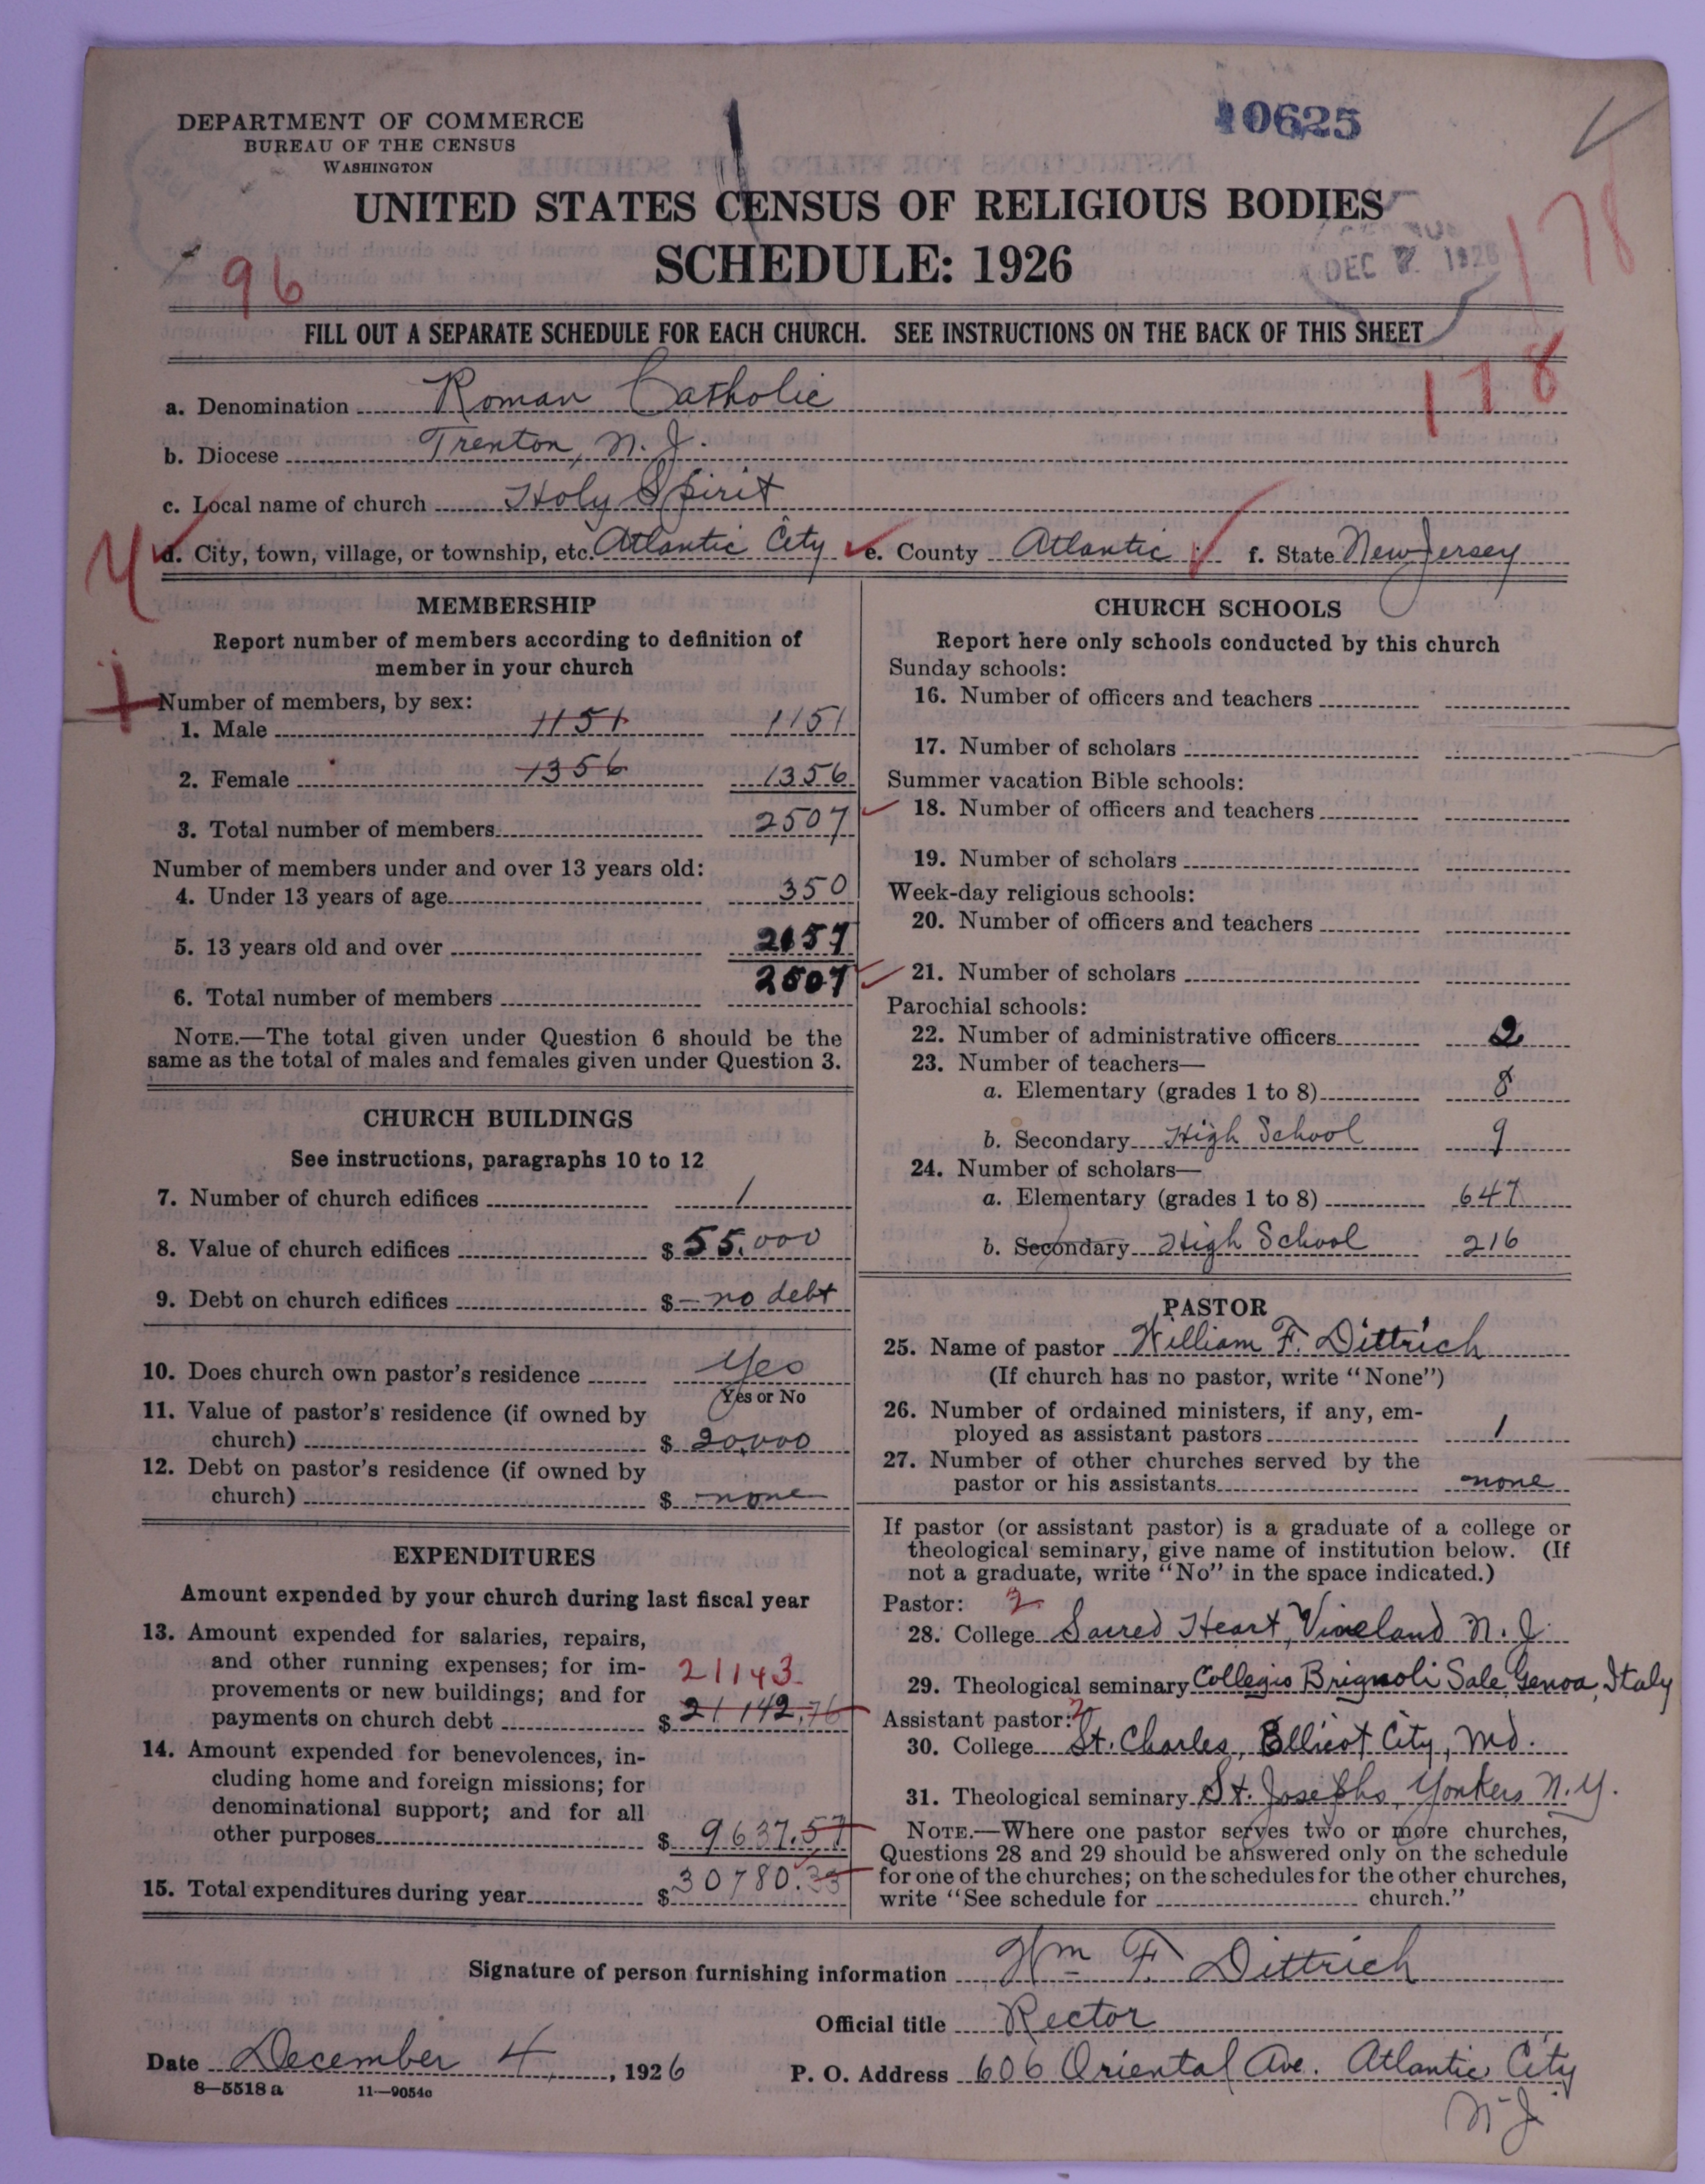 DEPARTMENT OF COMMERCE
BUREAU OF THE CENSUS
WASHINGTON
10625
UNITED STATES CENSUS OF RELIGIOUS BODIES
SCHEDULE: 1926
DEC 7 1926
178
96
FILL OUT A SEPARATE SCHEDULE FOR EACH CHURCH. SEE INSTRUCTIONS ON THE BACK OF THIS SHEET
118
a. Denomination Roman Catholic
b. Diocese Trenton, N. J.
c. Local name of church Holy Spirit
d. City, town, village, or township, etc. Atlantic City e. County Atlantic f. State New Jersey
MEMBERSHIP
Report number of members according to definition of
member in your church
Number of members, by sex:
1. Male 1151 1151
2. Female 1356 1356
3. Total number of members 2507
Number of members under and over 13 years old:
4. Under 13 years of age 350
5. 13 years old and over 2157
6. Total number of members 2507
NOTE.—The total given under Question 6 should be the
same as the total of males and females given under Question 3.
CHURCH BUILDINGS
See instructions, paragraphs 10 to 12
7. Number of church edifices 1
8. Value of church edifices $ 55,000
9. Debt on church edifices $ — no debt
10. Does church own pastor's residence Yes
Yes or No
11. Value of pastor's residence (if owned by
church) $ 20,000
12. Debt on pastor's residence (if owned by
church) $ none
EXPENDITURES
Amount expended by your church during last fiscal year
13. Amount expended for salaries, repairs,
and other running expenses; for im-
21143
provements or new buildings; and for
payments on church debt $ 21142.76
14. Amount expended for benevolences, in-
cluding home and foreign missions; for
denominational support; and for all
other purposes $ 9637.57
15. Total expenditures during year $ 30780.33
CHURCH SCHOOLS
Report here only schools conducted by this church
Sunday schools:
16. Number of officers and teachers
17. Number of scholars
Summer vacation Bible schools:
18. Number of officers and teachers
19. Number of scholars
Week-day religious schools:
20. Number of officers and teachers
21. Number of scholars
Parochial schools:
22. Number of administrative officers 2
23. Number of teachers—
a. Elementary (grades 1 to 8) 8
b. Secondary High School 9
24. Number of scholars—
a. Elementary (grades 1 to 8) 647
b. Secondary High School 216
PASTOR
25. Name of pastor William F. Dittrich
(If church has no pastor, write "None")
26. Number of ordained ministers, if any, em-
ployed as assistant pastors 1
27. Number of other churches served by the
pastor or his assistants none
If pastor (or assistant pastor) is a graduate of a college or
theological seminary, give name of institution below. (If
not a graduate, write "No" in the space indicated.)
Pastor: 2
28. College Sacred Heart, Vineland N. J.
29. Theological seminary Collegio Brignoli Sale, Genoa, Italy
Assistant pastor: 2
30. College St. Charles, Ellicot City, Md.
31. Theological seminary St. Josephs, Yonkers N. Y.
NOTE.—Where one pastor serves two or more churches,
Questions 28 and 29 should be answered only on the schedule
for one of the churches; on the schedules for the other churches,
write "See schedule for church."
Signature of person furnishing information Wm F. Dittrich
Official title Rector
Date December 4, 1926
P. O. Address 606 Oriental Ave. Atlantic City
N J
8—5518 a 11—9054o